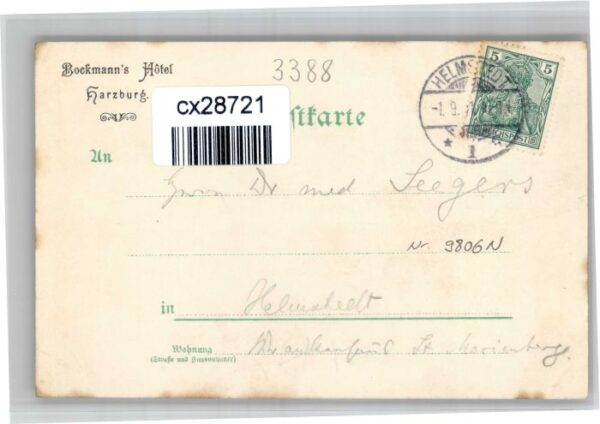 Bockmann's Hôtel
Harzburg.
3388
cx28721
stkarte
5
HELMSTEDT
-1.9.
* 1
An
Herrn Dr med Seegers
Nr. 9806N
in
Helmstedt
Wohnung
(Straße und Hausnummer)
Krankenhaus St. Marienberg